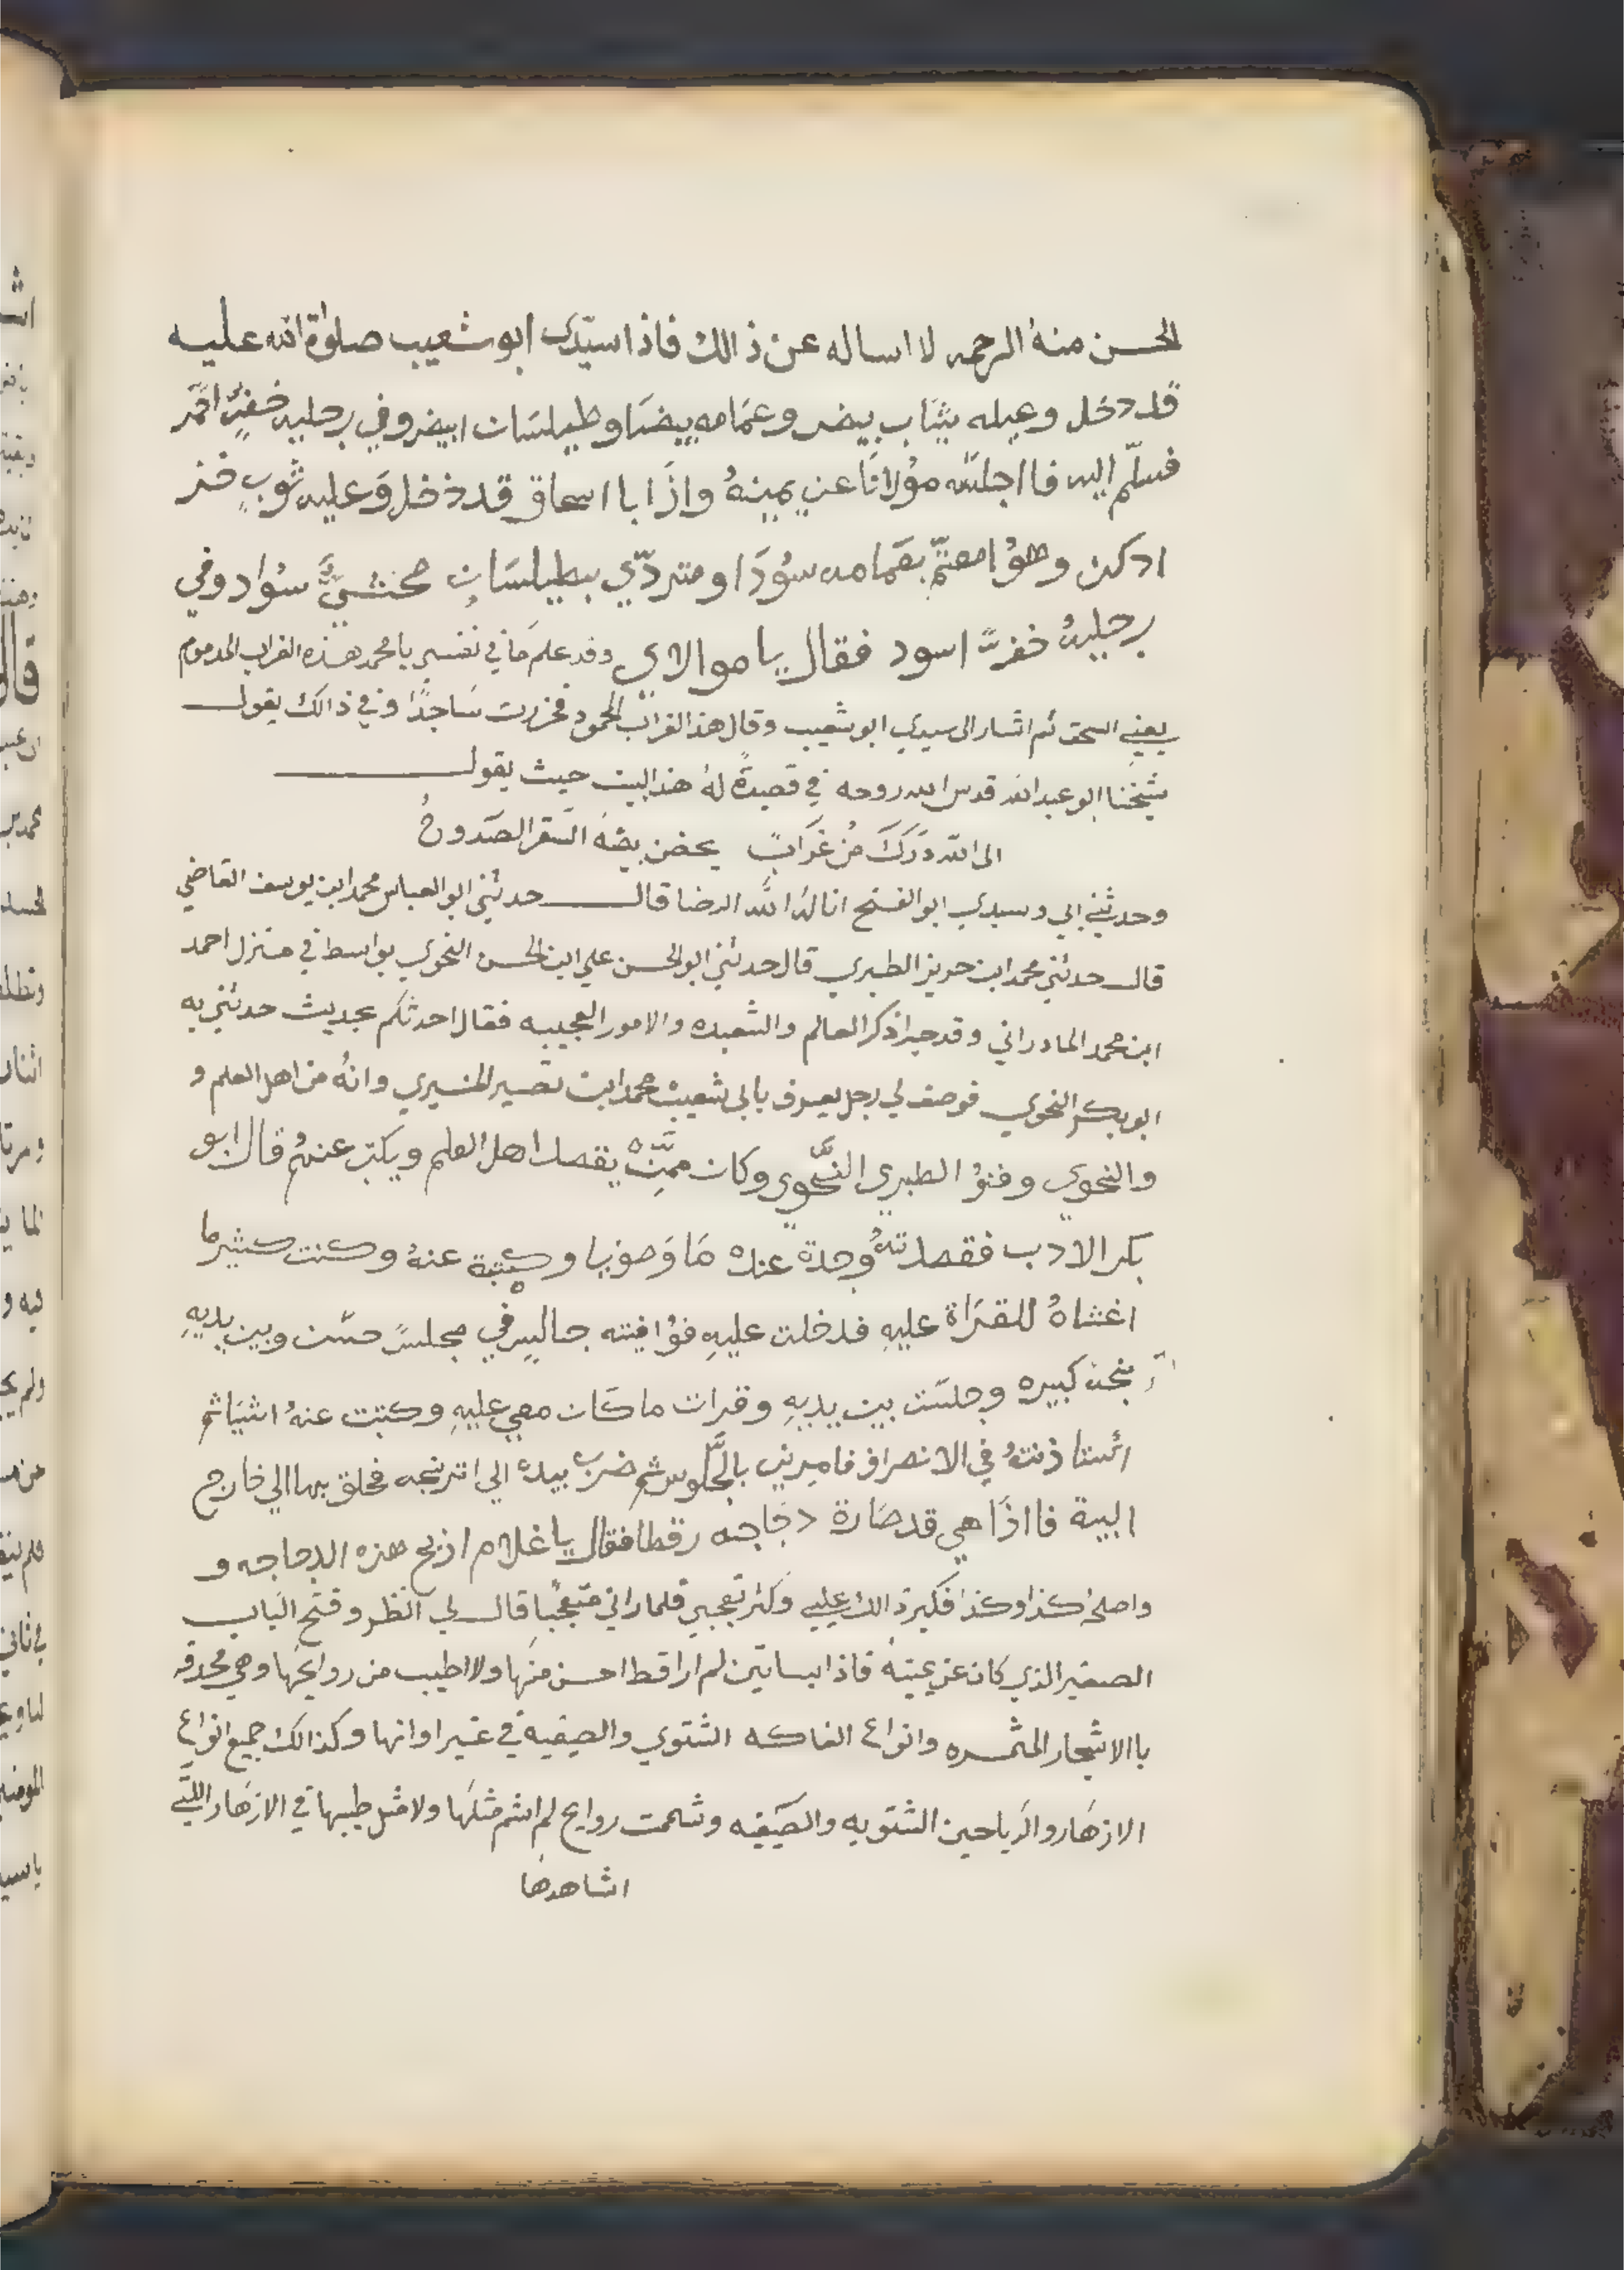 الحسن منهُ الرحمه لا اساله عن ذالك فاذا سيّدي ابو شعيب صلوٰة الله عليه
قد دخل وعيله ثيَاب بيض وعمَامه بيضَا وطيلسَان ابيض وفي رجليه خفٍّ احمَر
فسلّم اليه فا اجلسَه مؤلانَا عن يمينهُ واذَا با اسحاق قد دخل وَعليه ثوبٍ خز
ادكن وهوُ امعتمّ بعمَامه سوُدَا ومتردّي بطيلسَانٍ محشيّ سوُاد وفي
رجليهُ خفٍّ اسود فقال يا موالاي وقد علم مَا في نفسي يا محمد هذه الغراب المدموم
يعني اسحق ثم اشار الى سيدي ابو شعيب وقال هذا الغراب المحمود فخررت سَاجدًا وفي ذالك يقول
شيخنا ابو عبد الله قدس الله روحه في قصيدةً لهُ هذا البيت حيث يقول
الى الله دَرَكَ مُن غَرَابً يحضن بيضهُ السَقر الصَدوحُ
وحدثني ابي وسيدي ابو الفتح انالهُ الله الرضا قال حدثني ابو العباس محمد ابن يوسف القاضي
قال حدثني محمد ابن جرير الطبري قال حدثني ابو الحسن علي ابن الحسن النحوي بواسط في منزل احمد
ابن محمد المادراني وقد جرا ذكر العالم والشعبده والامور العجيبه فقال احدثكم بحديث حدثني به
ابو بكر النحوي فوصف لي رجل يعرف بابي شعيب محمد ابن نصير النميري وانهُ من اهل العلم و
والنحوي وفنوُ الطبري النحّوي وكان ممَّن يقصد اهل العلم ويكتب عنهُم قال ابو
بكر الادب فقصدتهُ وجدة عندهُ مَا وَصوُفيا وكتبة عنهُ وكنت كثير ما
اغشاهُ للقرَاة عليهِ فدخلت عليهِ فوُافيته جالسٍ في مجلسً حسَن وبين يديهِ
كبيره وجلسَت بين يديهِ وقرات ما كَان معي عليهِ وكتبت عنهُ اشيَا ثم
ائستاذنتهُ في الانصراف فامرني بالجَّلوس ثم ضرَب بيدهُ الي اترنجه فحلق بها الي خارج
البية فا اذَا هي قد صَارة دجَاجه رقطا فقال يا غلام اذبح هذه الدجاجه و
واصلحُ كذا وكذا فكبر ذالك عليي وَكثر تعجبي فلما راني متعجُبا قال لي انظر وفتح البَاب
الصغير الذي كان عن يمينهُ فاذا ببساتين لم ارا قط احسن منهَا ولا اطيب من روايحَها وهي محدقه
با الاشجار المثمره وانواع الفاكه الشتوي والصيفية في غير اوانها وكذالك جميع انواع
الازهَار والرَياحين الشتويه والصَيفيه وشممت روايح لم اشم مثلهَا ولا مثل طيبها في الازهَار اللتَي
اشاهدهَا